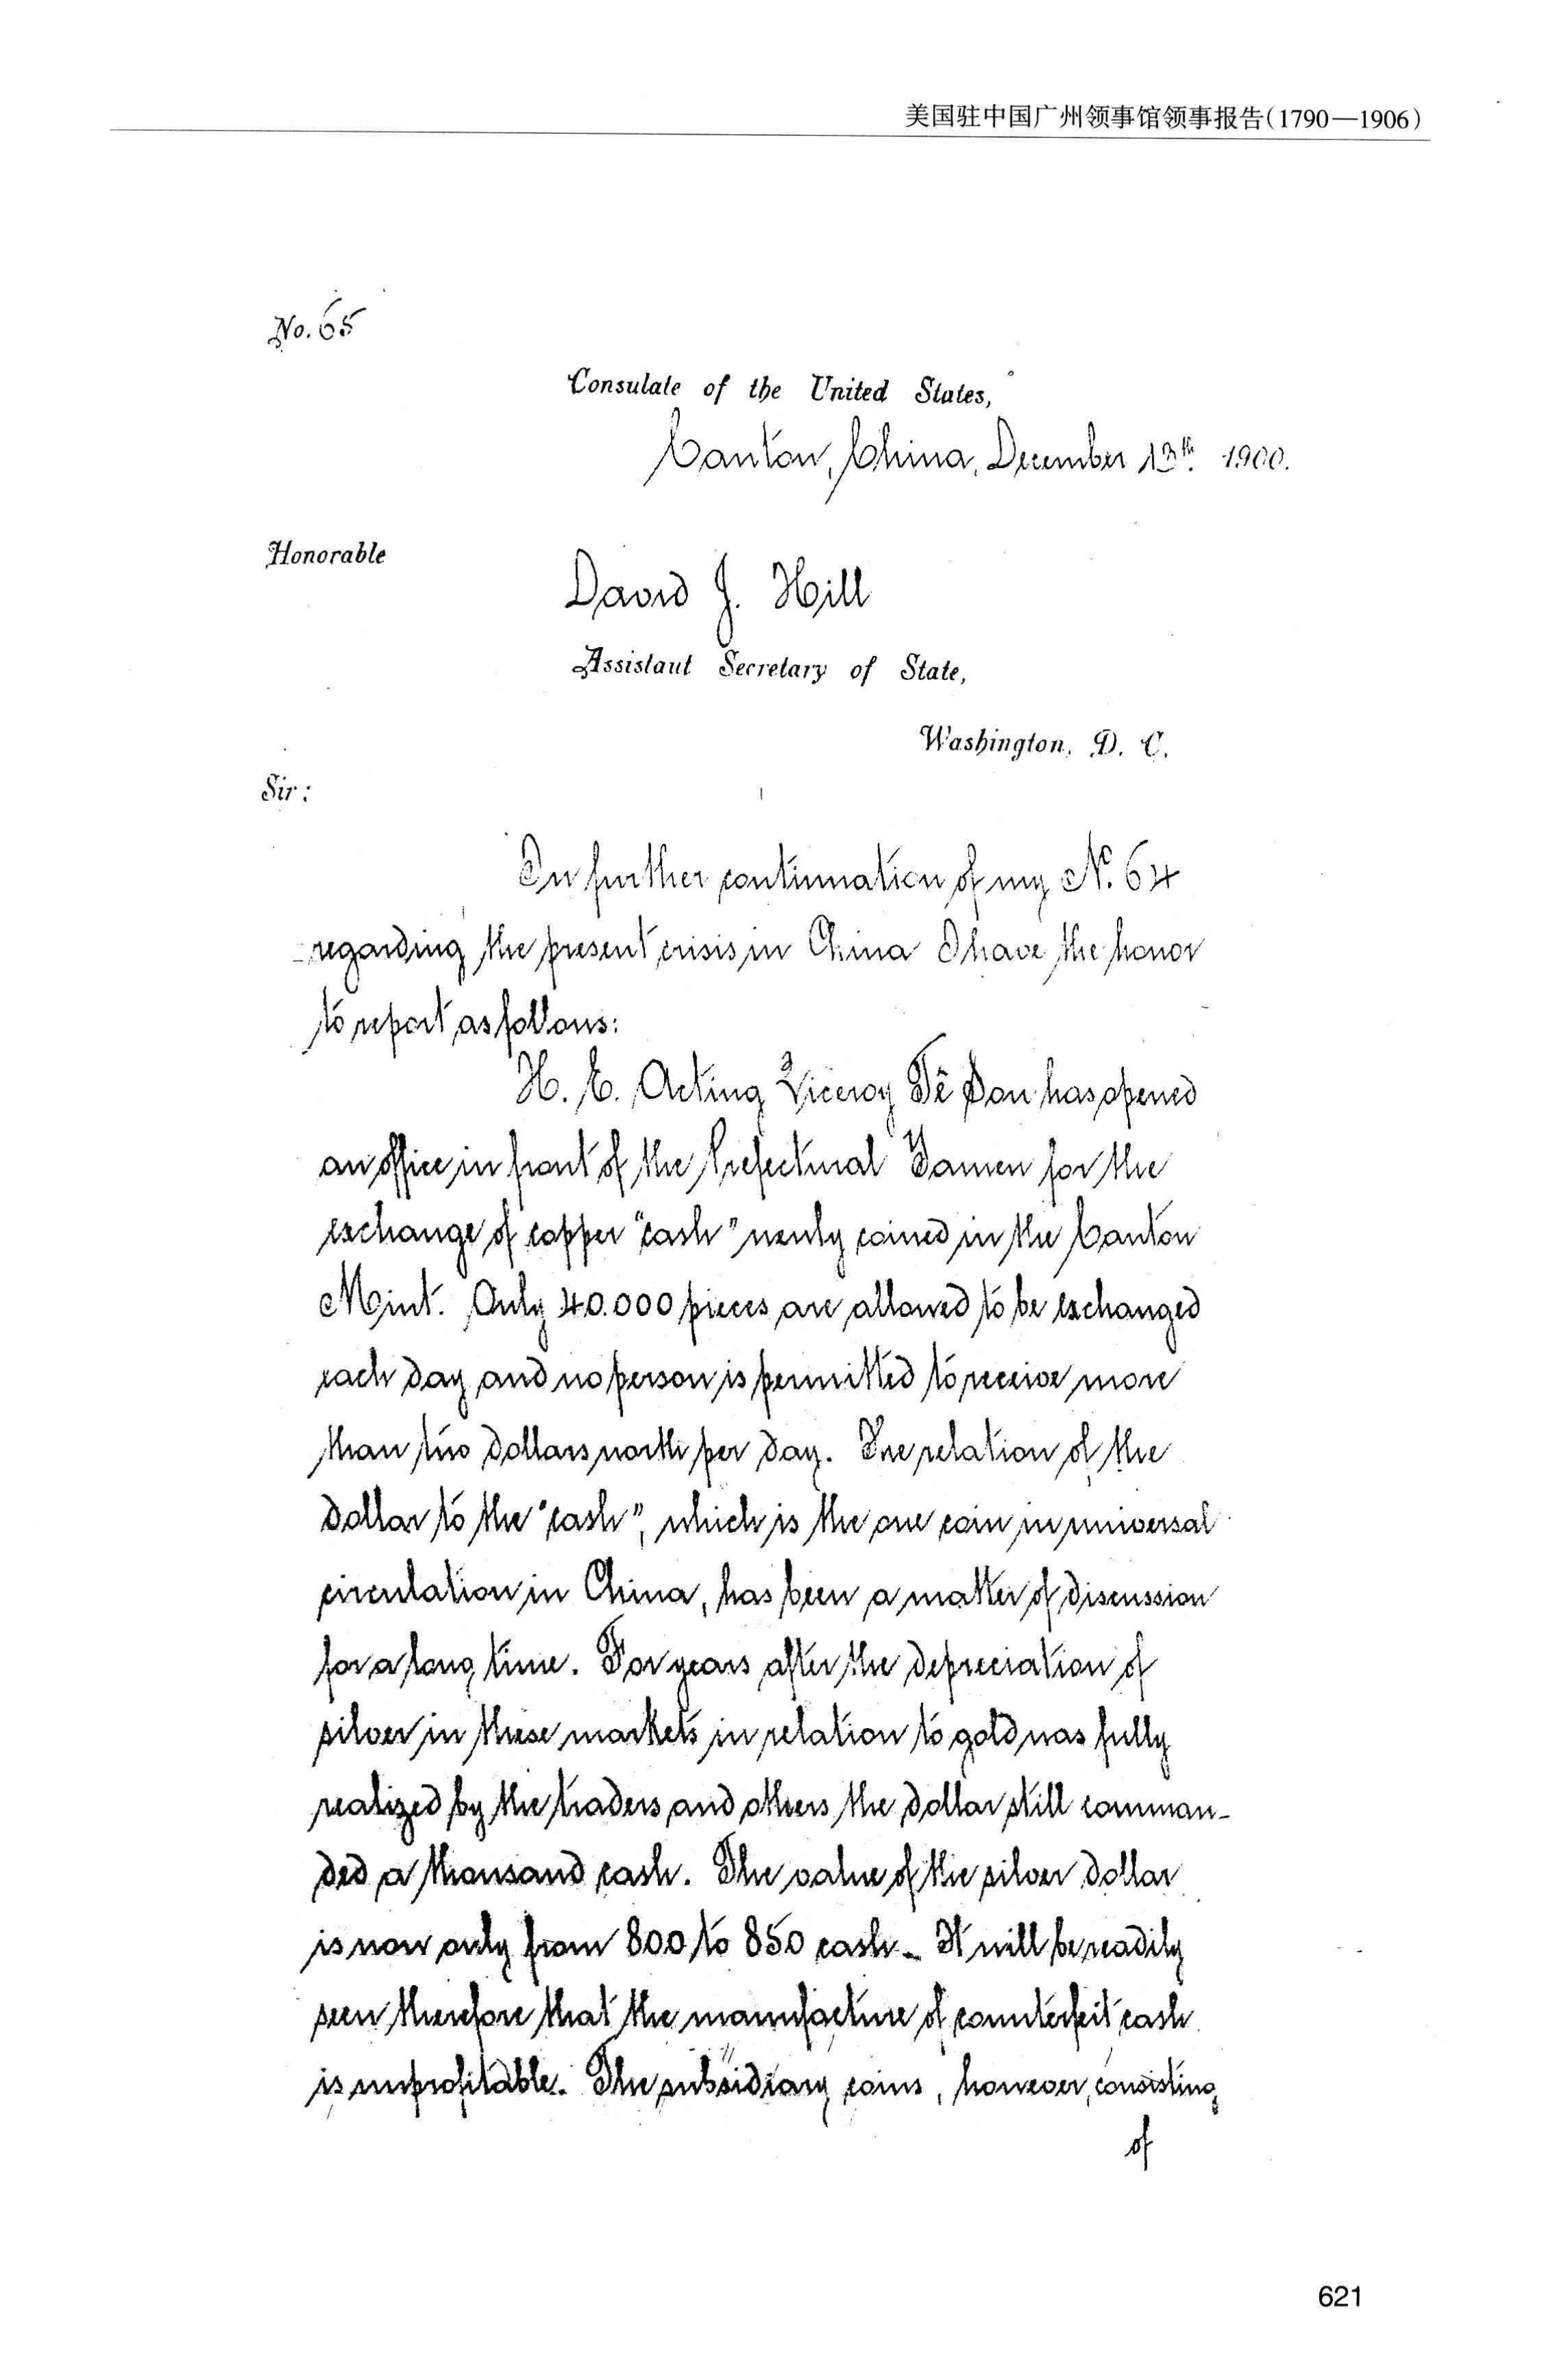 美国驻中国广州领事馆领事报告(1790—1906)
No. 65
Consulate of the United States,
Canton, China, December 13th. 1900.
Honorable
David J. Hill
Assistant Secretary of State,
Washington, D. C.
Sir:
In further continuation of my No. 64
regarding the present crisis in China I have the honor
to report as follows:
H. E. Acting Viceroy Tê Sou has opened
an office in front of the Prefectural Yamen for the
exchange of copper "cash" newly coined in the Canton
Mint. Only 40.000 pieces are allowed to be exchanged
each day and no person is permitted to receive more
than two dollars worth per day. The relation of the
dollar to the "cash", which is the one coin in universal
circulation in China, has been a matter of discussion
for a long time. For years after the depreciation of
silver in these markets in relation to gold was fully
realized by the traders and others the dollar still comman-
ded a thousand cash. The value of the silver dollar
is now only from 800 to 850 cash. It will be readily
seen therefore that the manufacture of counterfeit cash
is unprofitable. The subsidiary coins, however, consisting
of
621